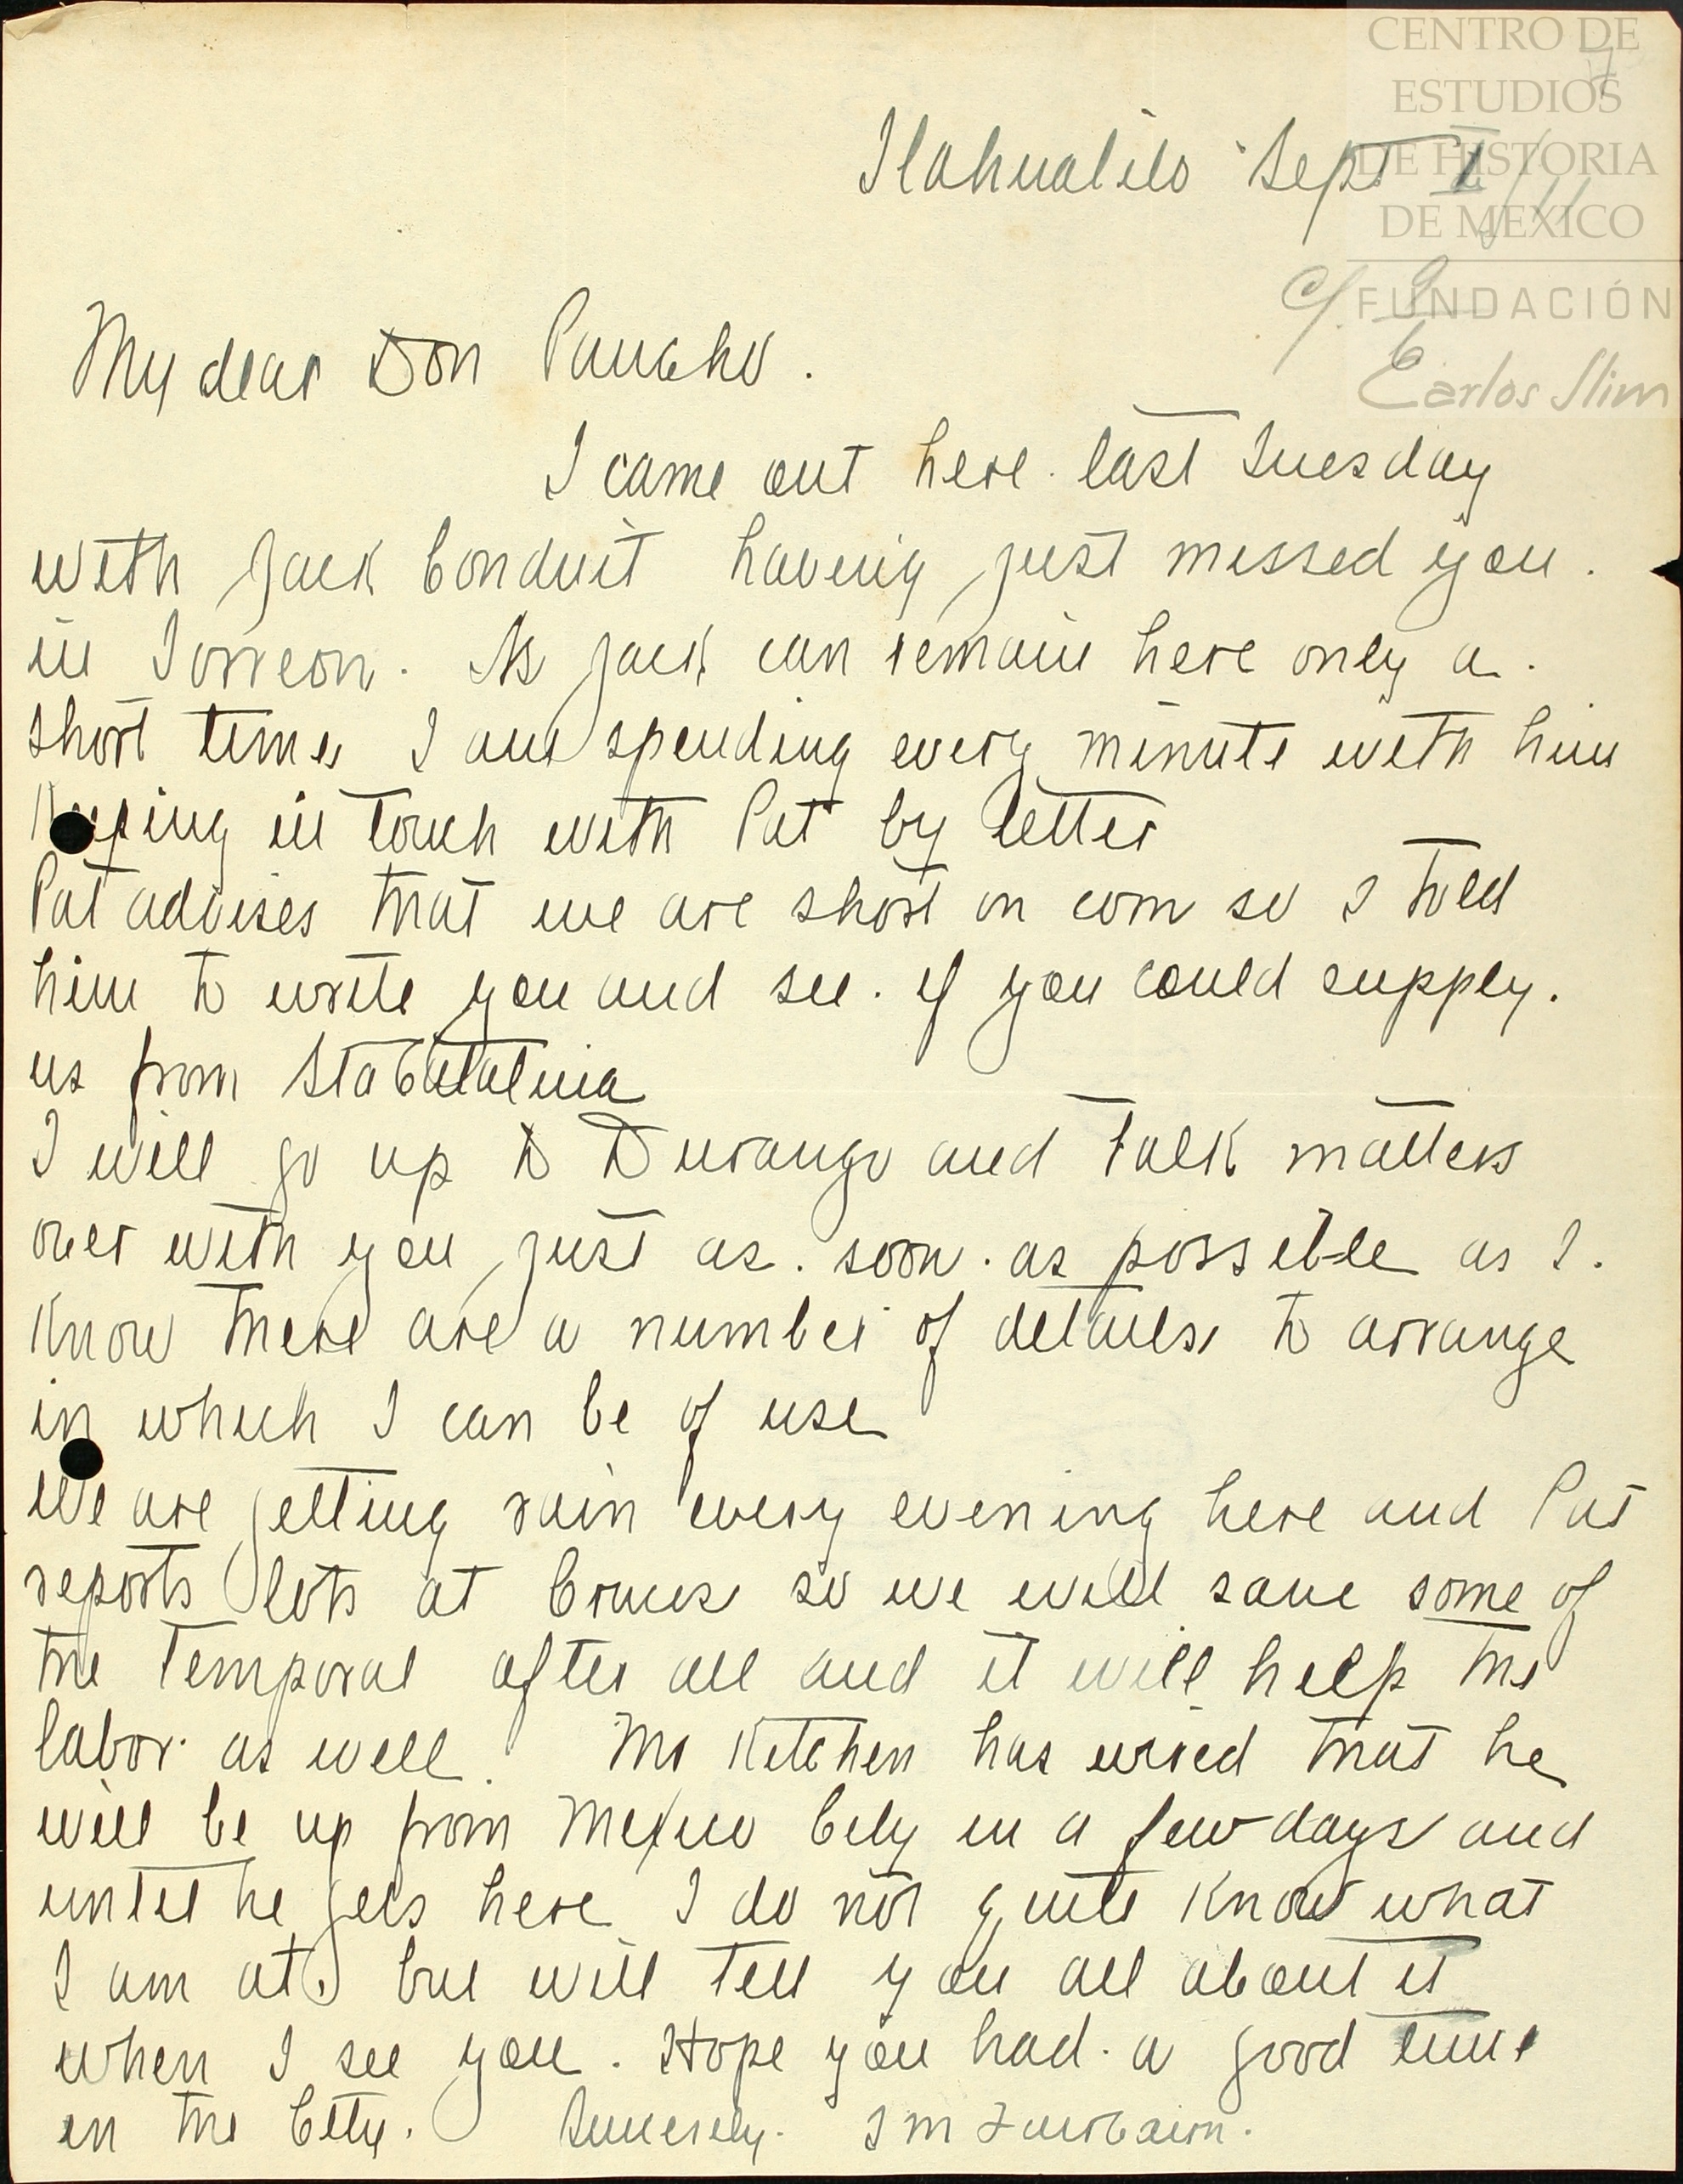 CENTRO DE
ESTUDIOS
DE HISTORIA
DE MEXICO
FUNDACIÓN
Carlos Slim
Tlahualilo Sept
My dear Don Pancho.
I came out here last Tuesday
with Jack Conduit having just missed you.
in Torreon. As Jack can remain here only a
short time I am spending every minute with him
Keeping in touch with Pat by letter
Pat advises that we are short on corn so I told
him to write you and see if you could supply.
us from Sta Catalina
I will go up to Durango and talk matters
over with you just as soon as possible as I
Know there are a number of details to arrange
in which I can be of use
We are getting rain every evening here and Pat
reports lots at Cruces so we will save some of
the Temporal after all and it will help the
labor as well. Mr Kitchen has wired that he
will be up from Mexico City in a few days and
until he gets here I do not quite Know what
I am at, but will tell you all about it
when I see you. Hope you had a good time
in the City. Sincerely. J M Fairbairn.